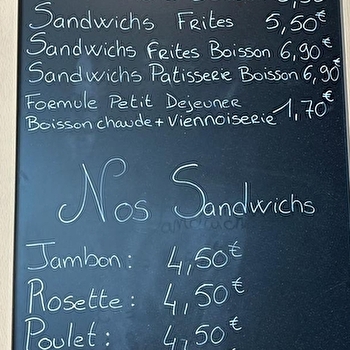 Sandwichs Frites 5,50€
Sandwichs Frites Boisson 6,90€
Sandwichs Patisserie Boisson 6,90€
Formule Petit Dejeuner
Boisson chaude + Viennoiserie 1,70€
Nos Sandwichs
Jambon : 4,50€
Rosette : 4,50€
Poulet : 4,50€